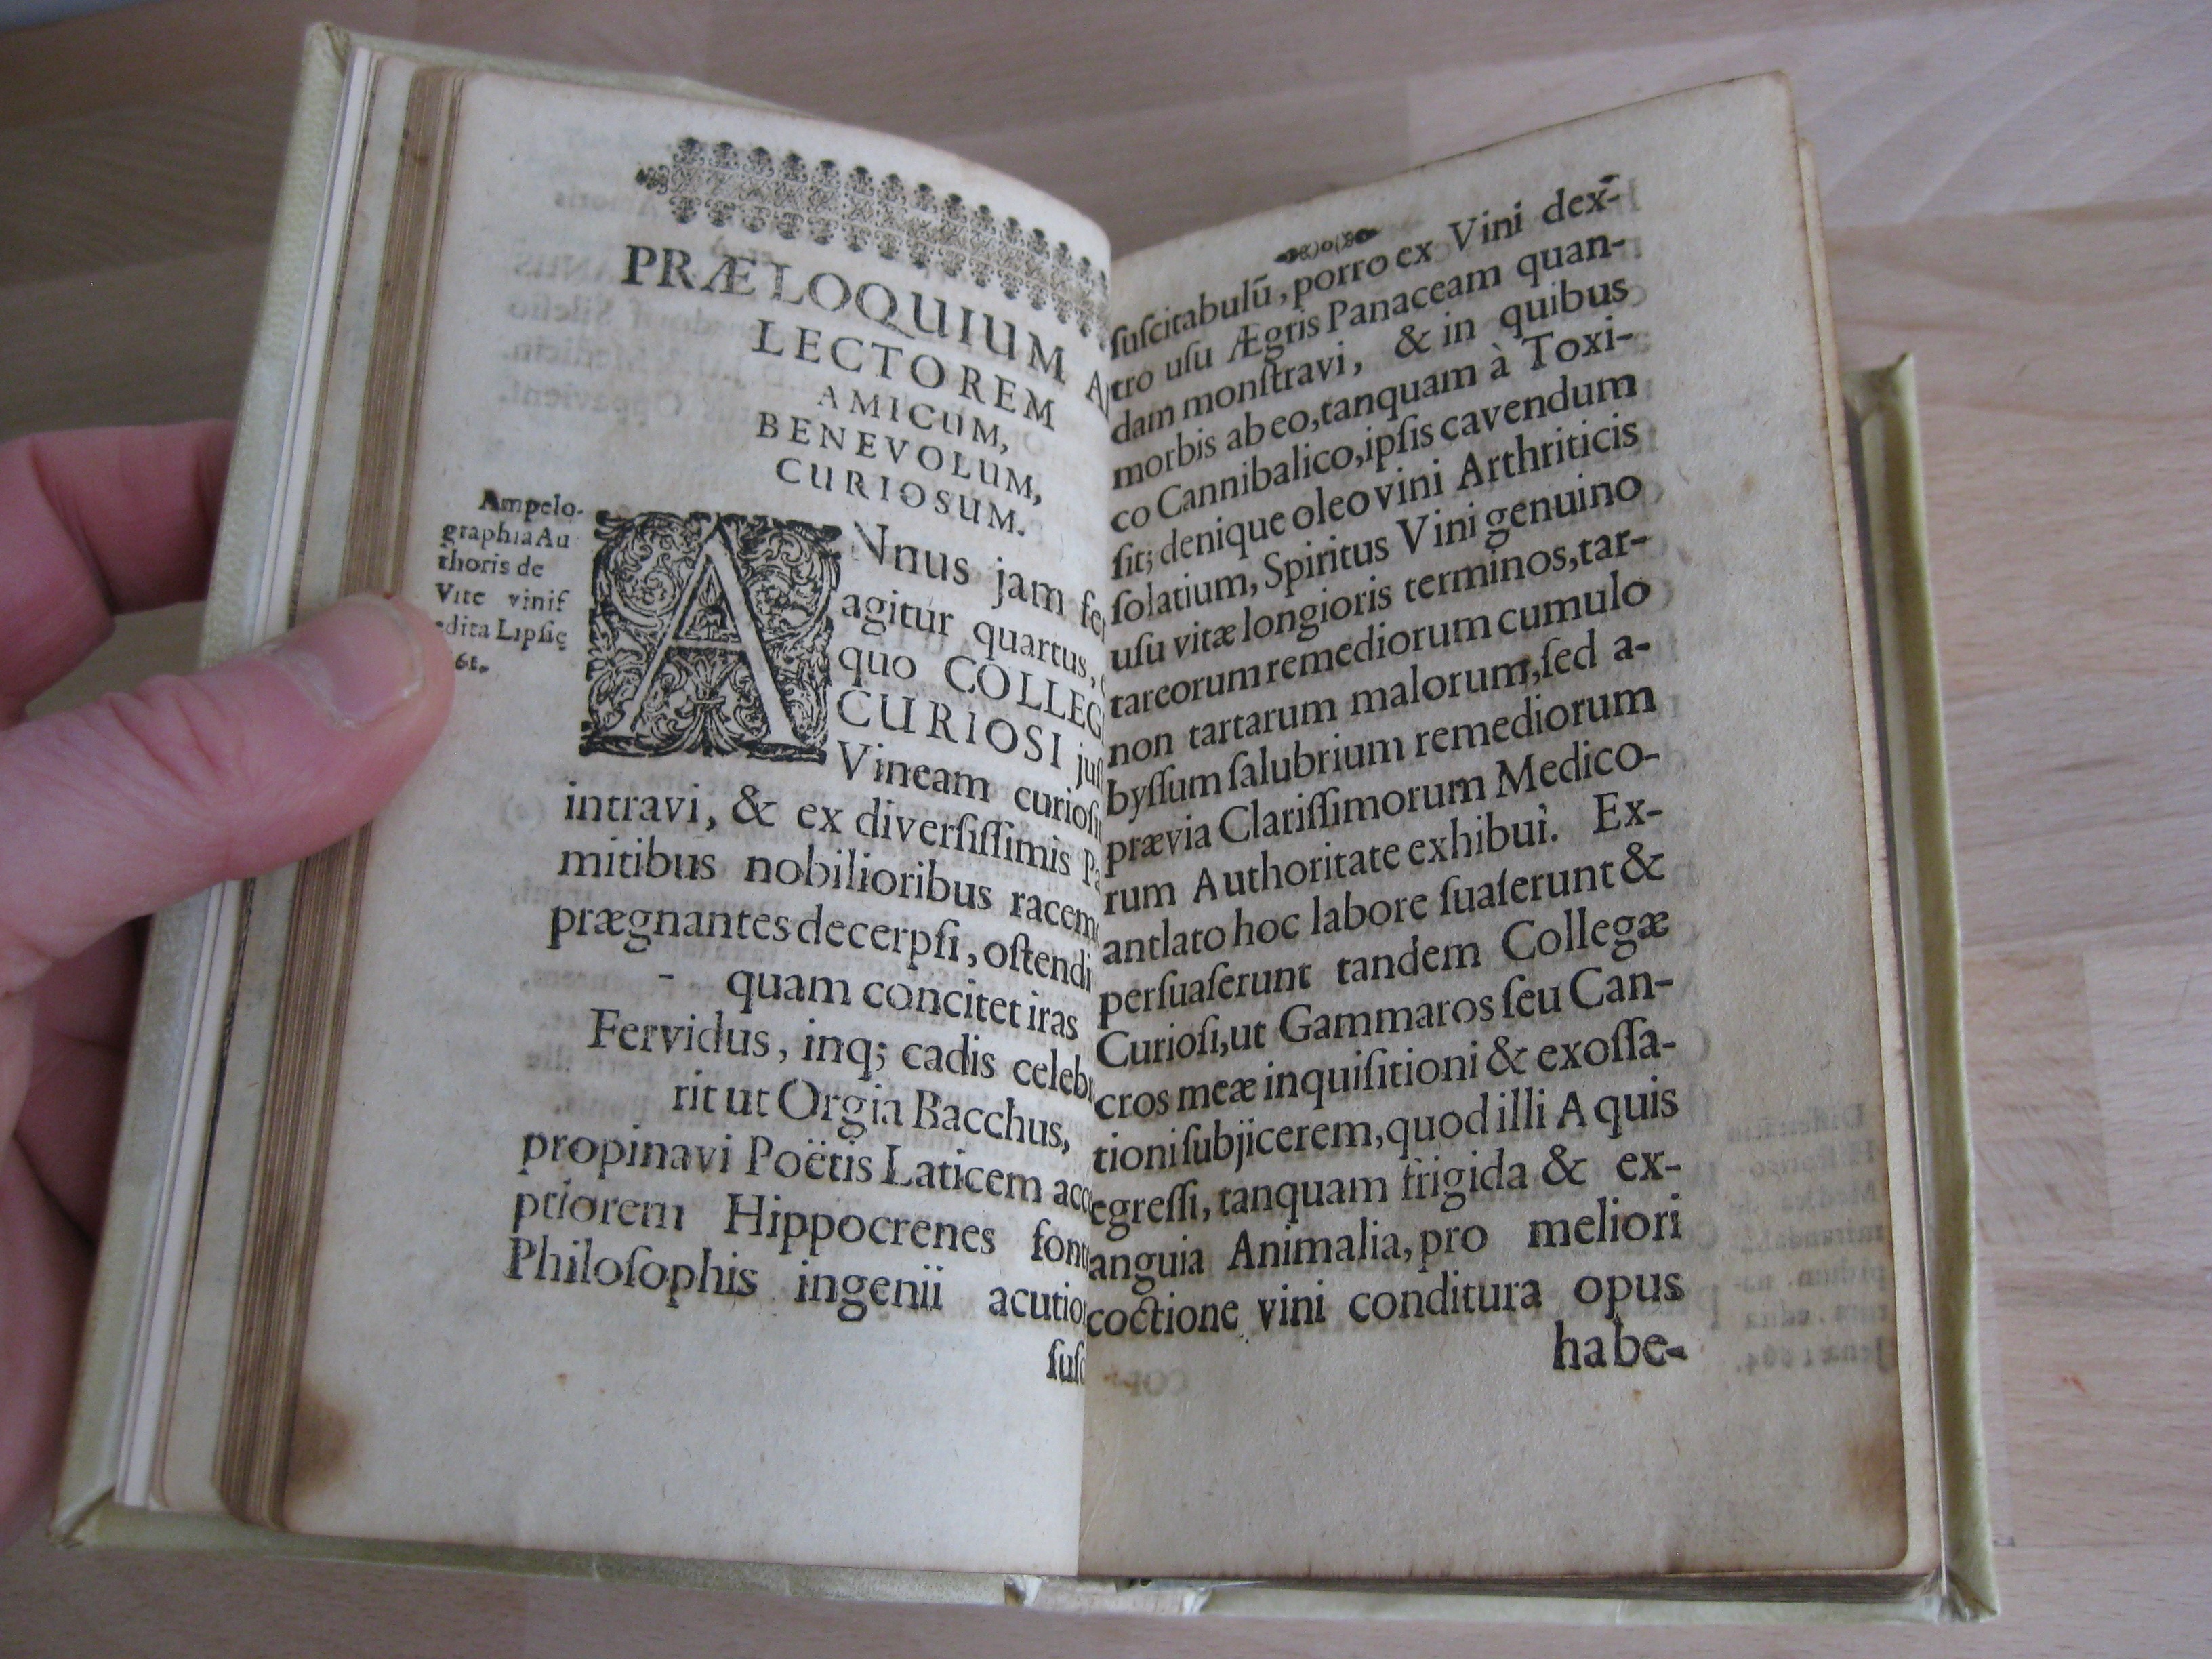 PRÆLOQUIUM
LECTOREM
AMICUM,
BENEVOLUM,
CURIOSUM.
Ampelo-
graphia Au
thoris de
Vite vinif
edita Lipsię
ANnus jam
agitur quartus,
quo
CURIOSI
Vineam
intravi, & ex diversissimis
mitibus nobilioribus
prægnantes decerpsi, ostendi
- quam concitet iras
Fervidus, inq; cadis
rit ut Orgia Bacchus,
propinavi Poëtis Laticem
ptiorem Hippocrenes
Philosophis ingenii
suscitabulū, porro ex Vini dex-
tro usu Ægris Panaceam quan-
dam monstravi, & in quibus
morbis ab eo, tanquam à Toxi-
co Cannibalico, ipsis cavendum
sit; denique oleo vini Arthriticis
solatium, Spiritus Vini genuino
usu vitæ longioris terminos, tar-
tareorum remediorum cumulo
non tartarum malorum, sed a-
byssum salubrium remediorum
prævia Clarissimorum Medico-
rum Authoritate exhibui. Ex-
antlato hoc labore suaserunt &
persuaserunt tandem Collegæ
Curiosi, ut Gammaros seu Can-
cros meæ inquisitioni & exossa-
tioni subjicerem, quod illi Aquis
egressi, tanquam frigida & ex-
anguia Animalia, pro meliori
coctione vini conditura opus
habe-